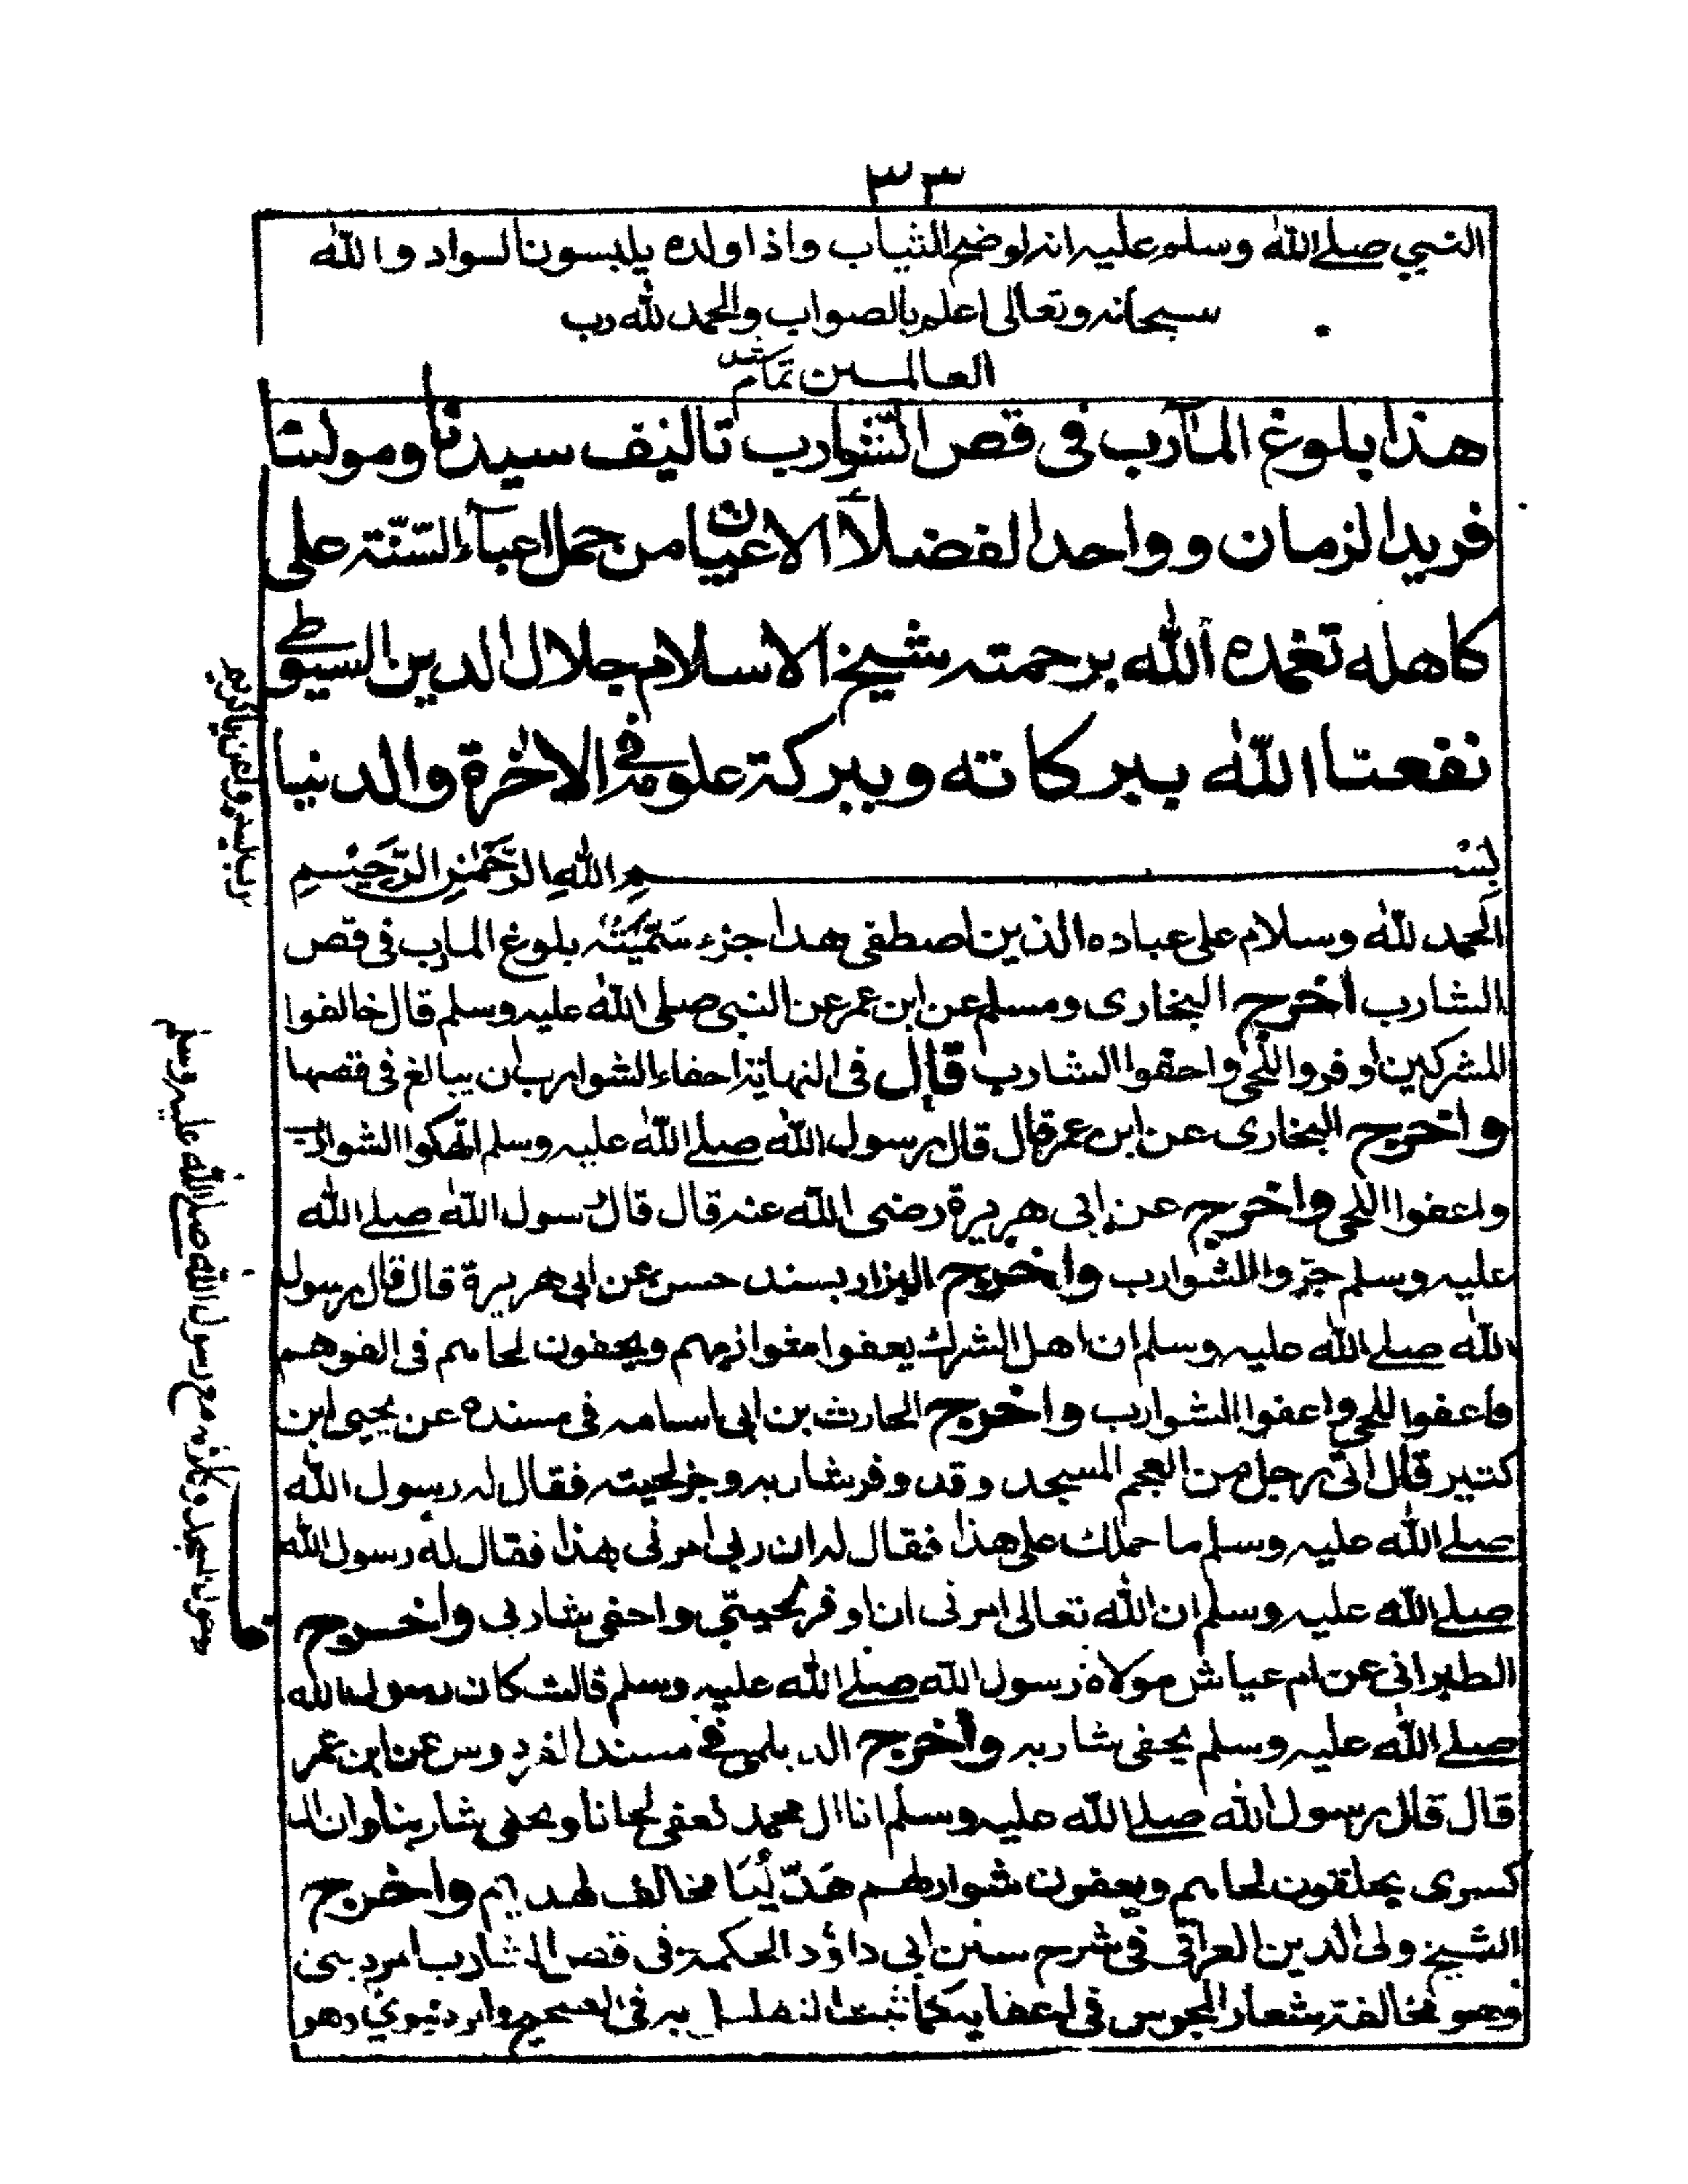 ٣٣
النبي صلے الله وسلم عليه انه لوضح الثياب واذا ولده يلبسون السواد والله
سبحانه وتعالى اعلم بالصواب والحمد لله رب
العالمين تمام شد
هذا بلوغ المآرب في قص الشوارب تاليف سيدنا ومولنا
فريد الزمان وواحد الفضلاء الاعيان من حمل اعباء السنة على
كاهله تغمده الله برحمته شيخ الاسلام جلال الدين السيوطے
نفعنا الله ببركاته وببركة علومه في الاخرة والدنيا
بسم الله الرحمن الرحيم
الحمد لله وسلام على عباده الذين اصطفى هذا جزء سَمَّيْتُه بلوغ المارب في قص
الشارب اخرج البخارى ومسلم عن ابن عمر عن النبي صلى الله عليه وسلم قال خالفوا
المشركين اوفروا اللحى واحفوا الشارب قال في النهاية احفاء الشوارب ان يبالغ في قصها
واخرج البخارى عن ابن عمر قال قال رسول الله صلے الله عليه وسلم انهكوا الشوارب
واعفوا اللحى واخرج عن ابى هريرة رضى الله عنه قال قال رسول الله صلے الله
عليه وسلم جزوا الشوارب واخرج البزار بسند حسن عن ابى هريرة قال قال رسول
الله صلے الله عليه وسلم ان اهل الشرك يعفوا ويحفون لحاهم
واعفوا اللحى واعفوا الشوارب واخرج الحارث بن ابى اسامه فى مسنده عن يحيى ابن
كثير قال اتى رجل من العجم المسجد وقد وفر شاربه وجز لحيته فقال له رسول الله
صلے الله عليه وسلم ما حملك على هذا فقال له ان ربى امرنى بهذا فقال له رسول الله
صلے الله عليه وسلم ان الله تعالى امرنى ان اوفر لحيتي واحفى شاربى واخرج
الطبرانى عن ام عياش مولاة رسول الله صلے الله عليه وسلم قالت كان رسول الله
صلے الله عليه وسلم يحفى شاربه واخرج الديلمي في مسند الفردوس عن ابن عمر
قال قال رسول الله صلے الله عليه وسلم انا ال محمد نعفى لحانا ونحفى شاربنا وان ال
كسرى يحلقون لحاهم ويعفون شواربهم هَدْيُنَا مخالف لهديهم واخرج
الشيخ ولى الدين العراقى فى شرح سنن ابى داؤد الحكمة فى قص الشارب امر دينى
وهو مخالفة شعار المجوس فى اعفايه كما ثبت به فى الصحيح وامر دنيوي وهو